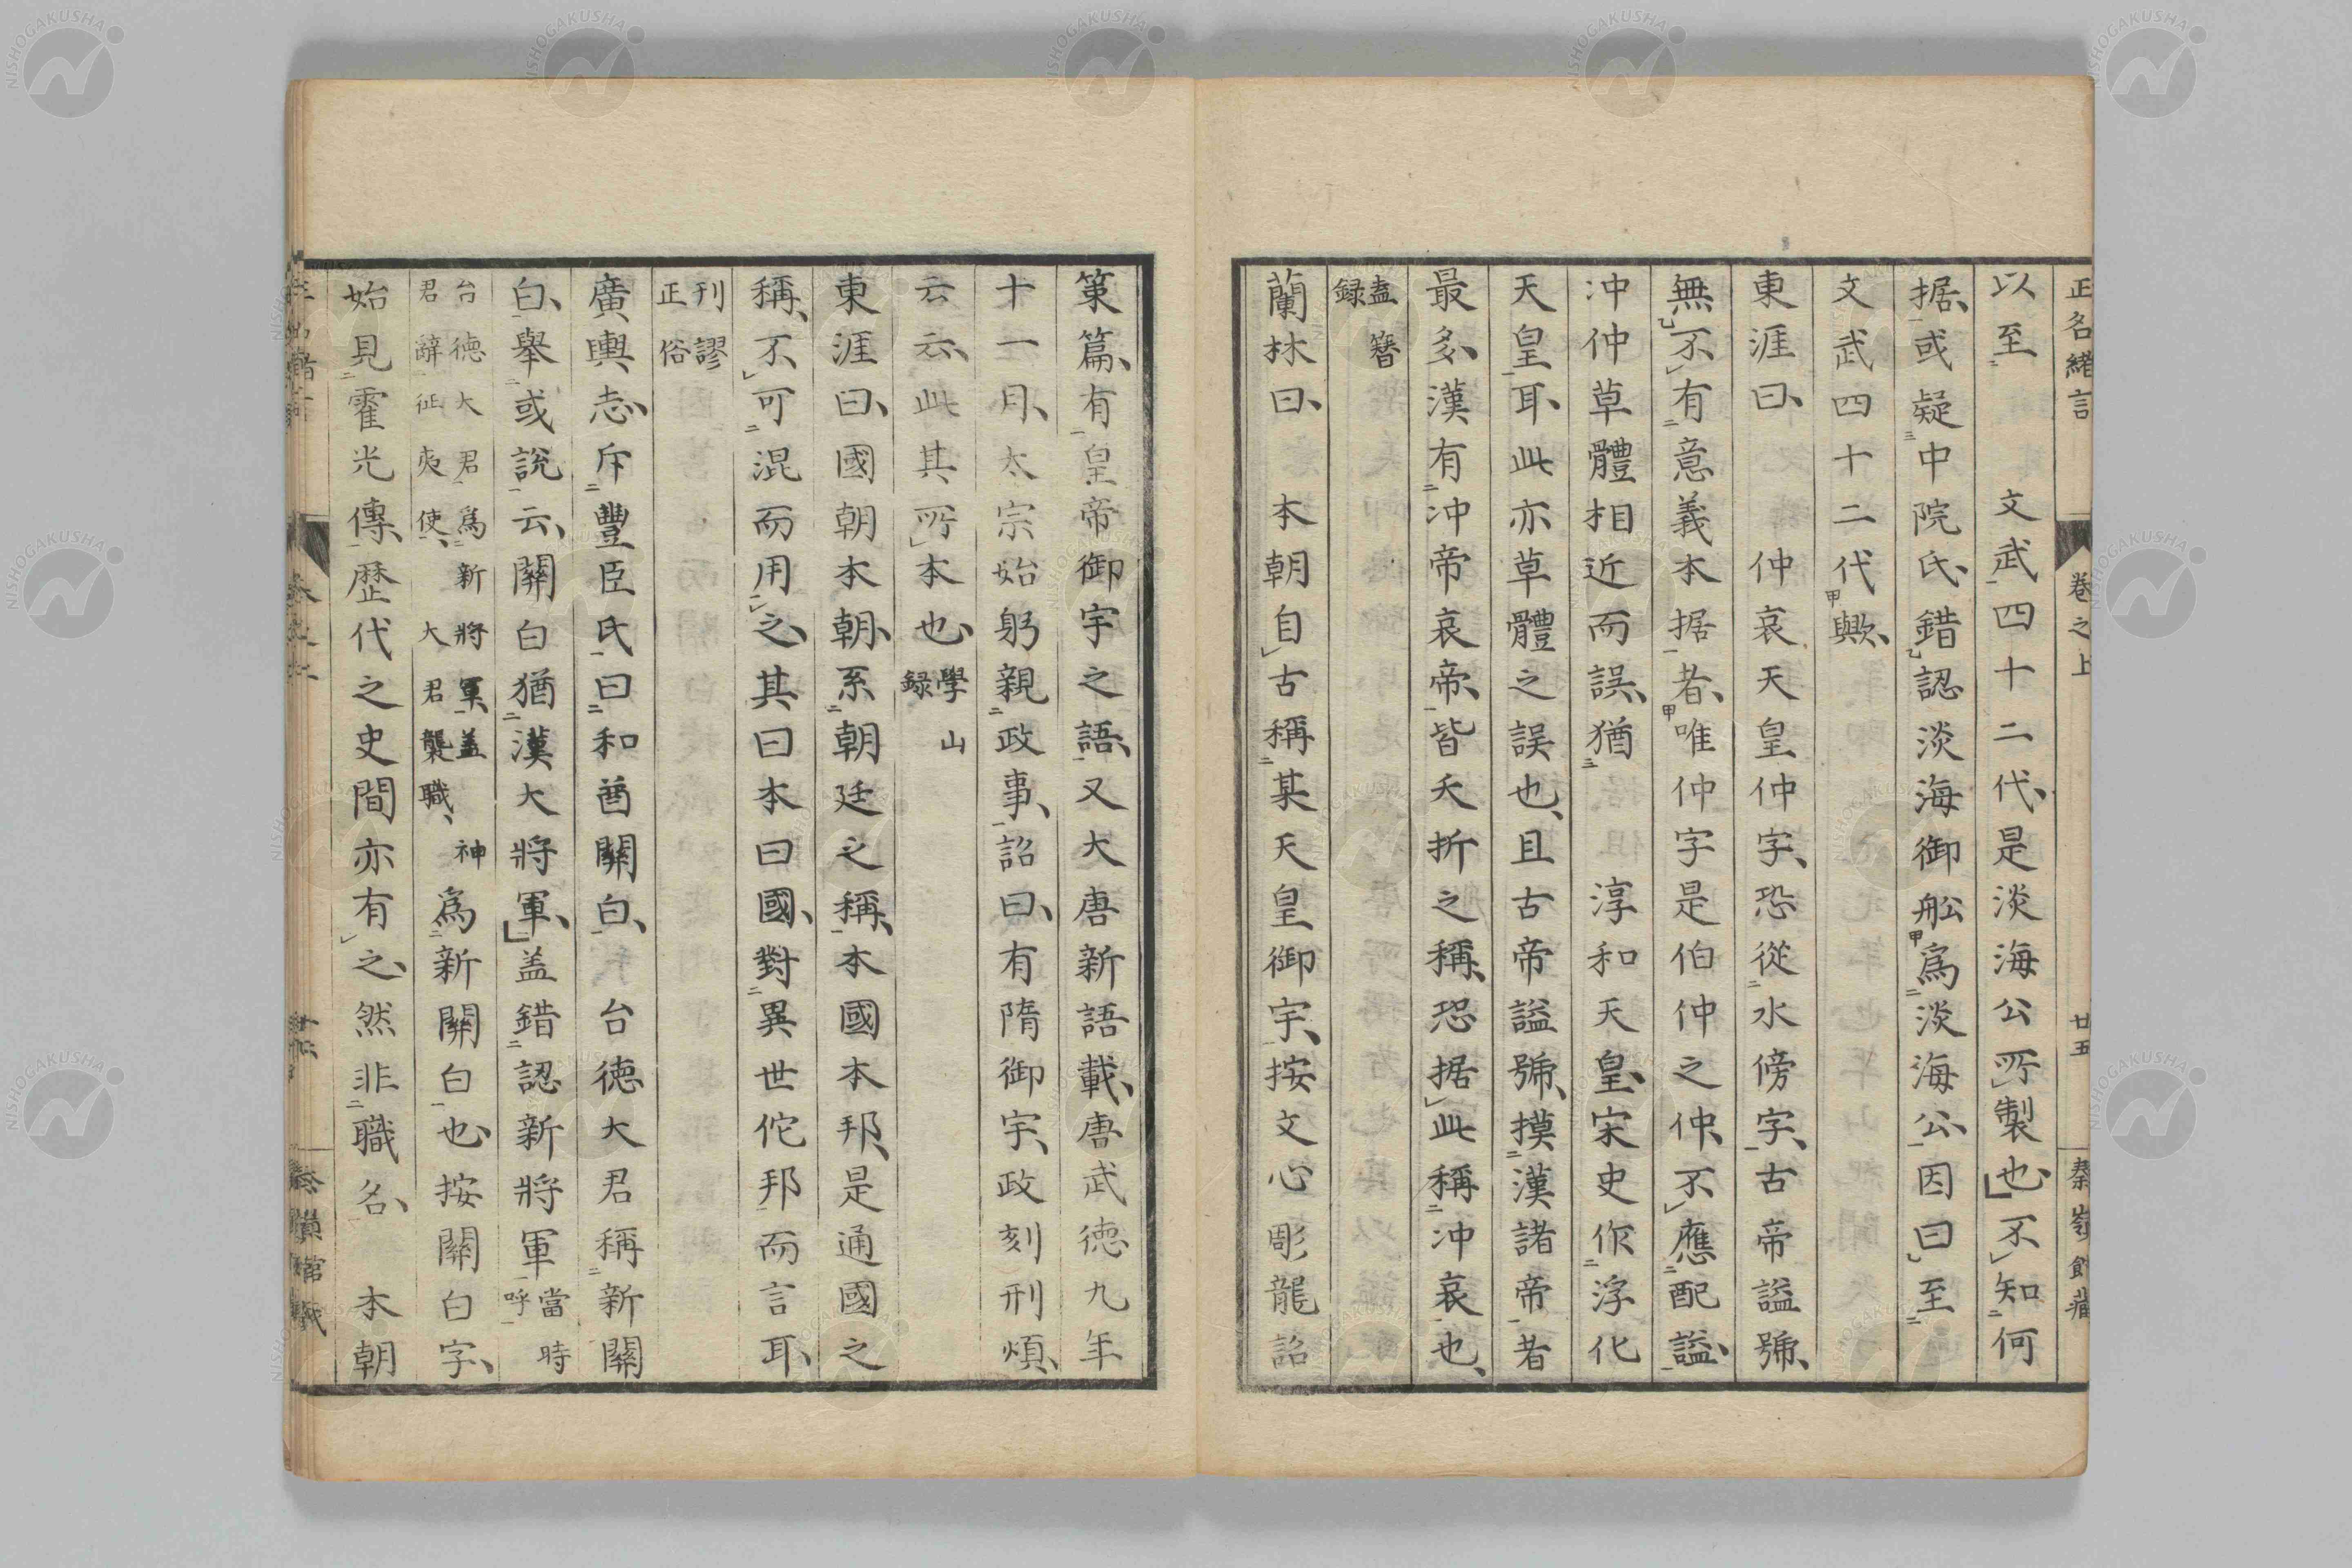 正名緒言 卷之上 廿五 秦嶺館藏
以至 文武四十二代、是淡海公所製也、不知何
据、或疑中院氏、錯認淡海御舩爲淡海公、因曰至
文武四十二代歟、
東涯曰、 仲哀天皇仲字、恐從水傍字、古帝謚號、
無不有意義本据者、唯仲字是伯仲之仲、不應配謚、
沖仲草體相近而誤、猶 淳和天皇、宋史作浮化
天皇耳、此亦草體之誤也、且古帝謚號、摸漢諸帝者
最多、漢有沖帝哀帝、皆夭折之稱、恐据此稱沖哀也、
盍簪
録
蘭林曰、 本朝自古稱某天皇御宇、按文心彫龍詔
策篇、有皇帝御宇之語、又大唐新語載、唐武徳九年
十一月、太宗始躬親政事、詔曰、有隋御宇、政刻刑煩、
云云、此其所本也、學山
録
東涯曰、國朝本朝、系朝廷之稱、本國本邦、是通國之
稱、不可混而用之、其曰本曰國、對異世佗邦而言耳、
刋謬
正俗
廣輿志、斥豐臣氏曰和酋關白、 台徳大君稱新關
白、舉或説云、關白猶漢大將軍、盖錯認新將軍當時
呼
台徳大君爲新將軍、盖 神
君辭征夷使、大君襲職、爲新關白也、按關白字、
始見霍光傳、歴代之史間亦有之、然非職名、 本朝